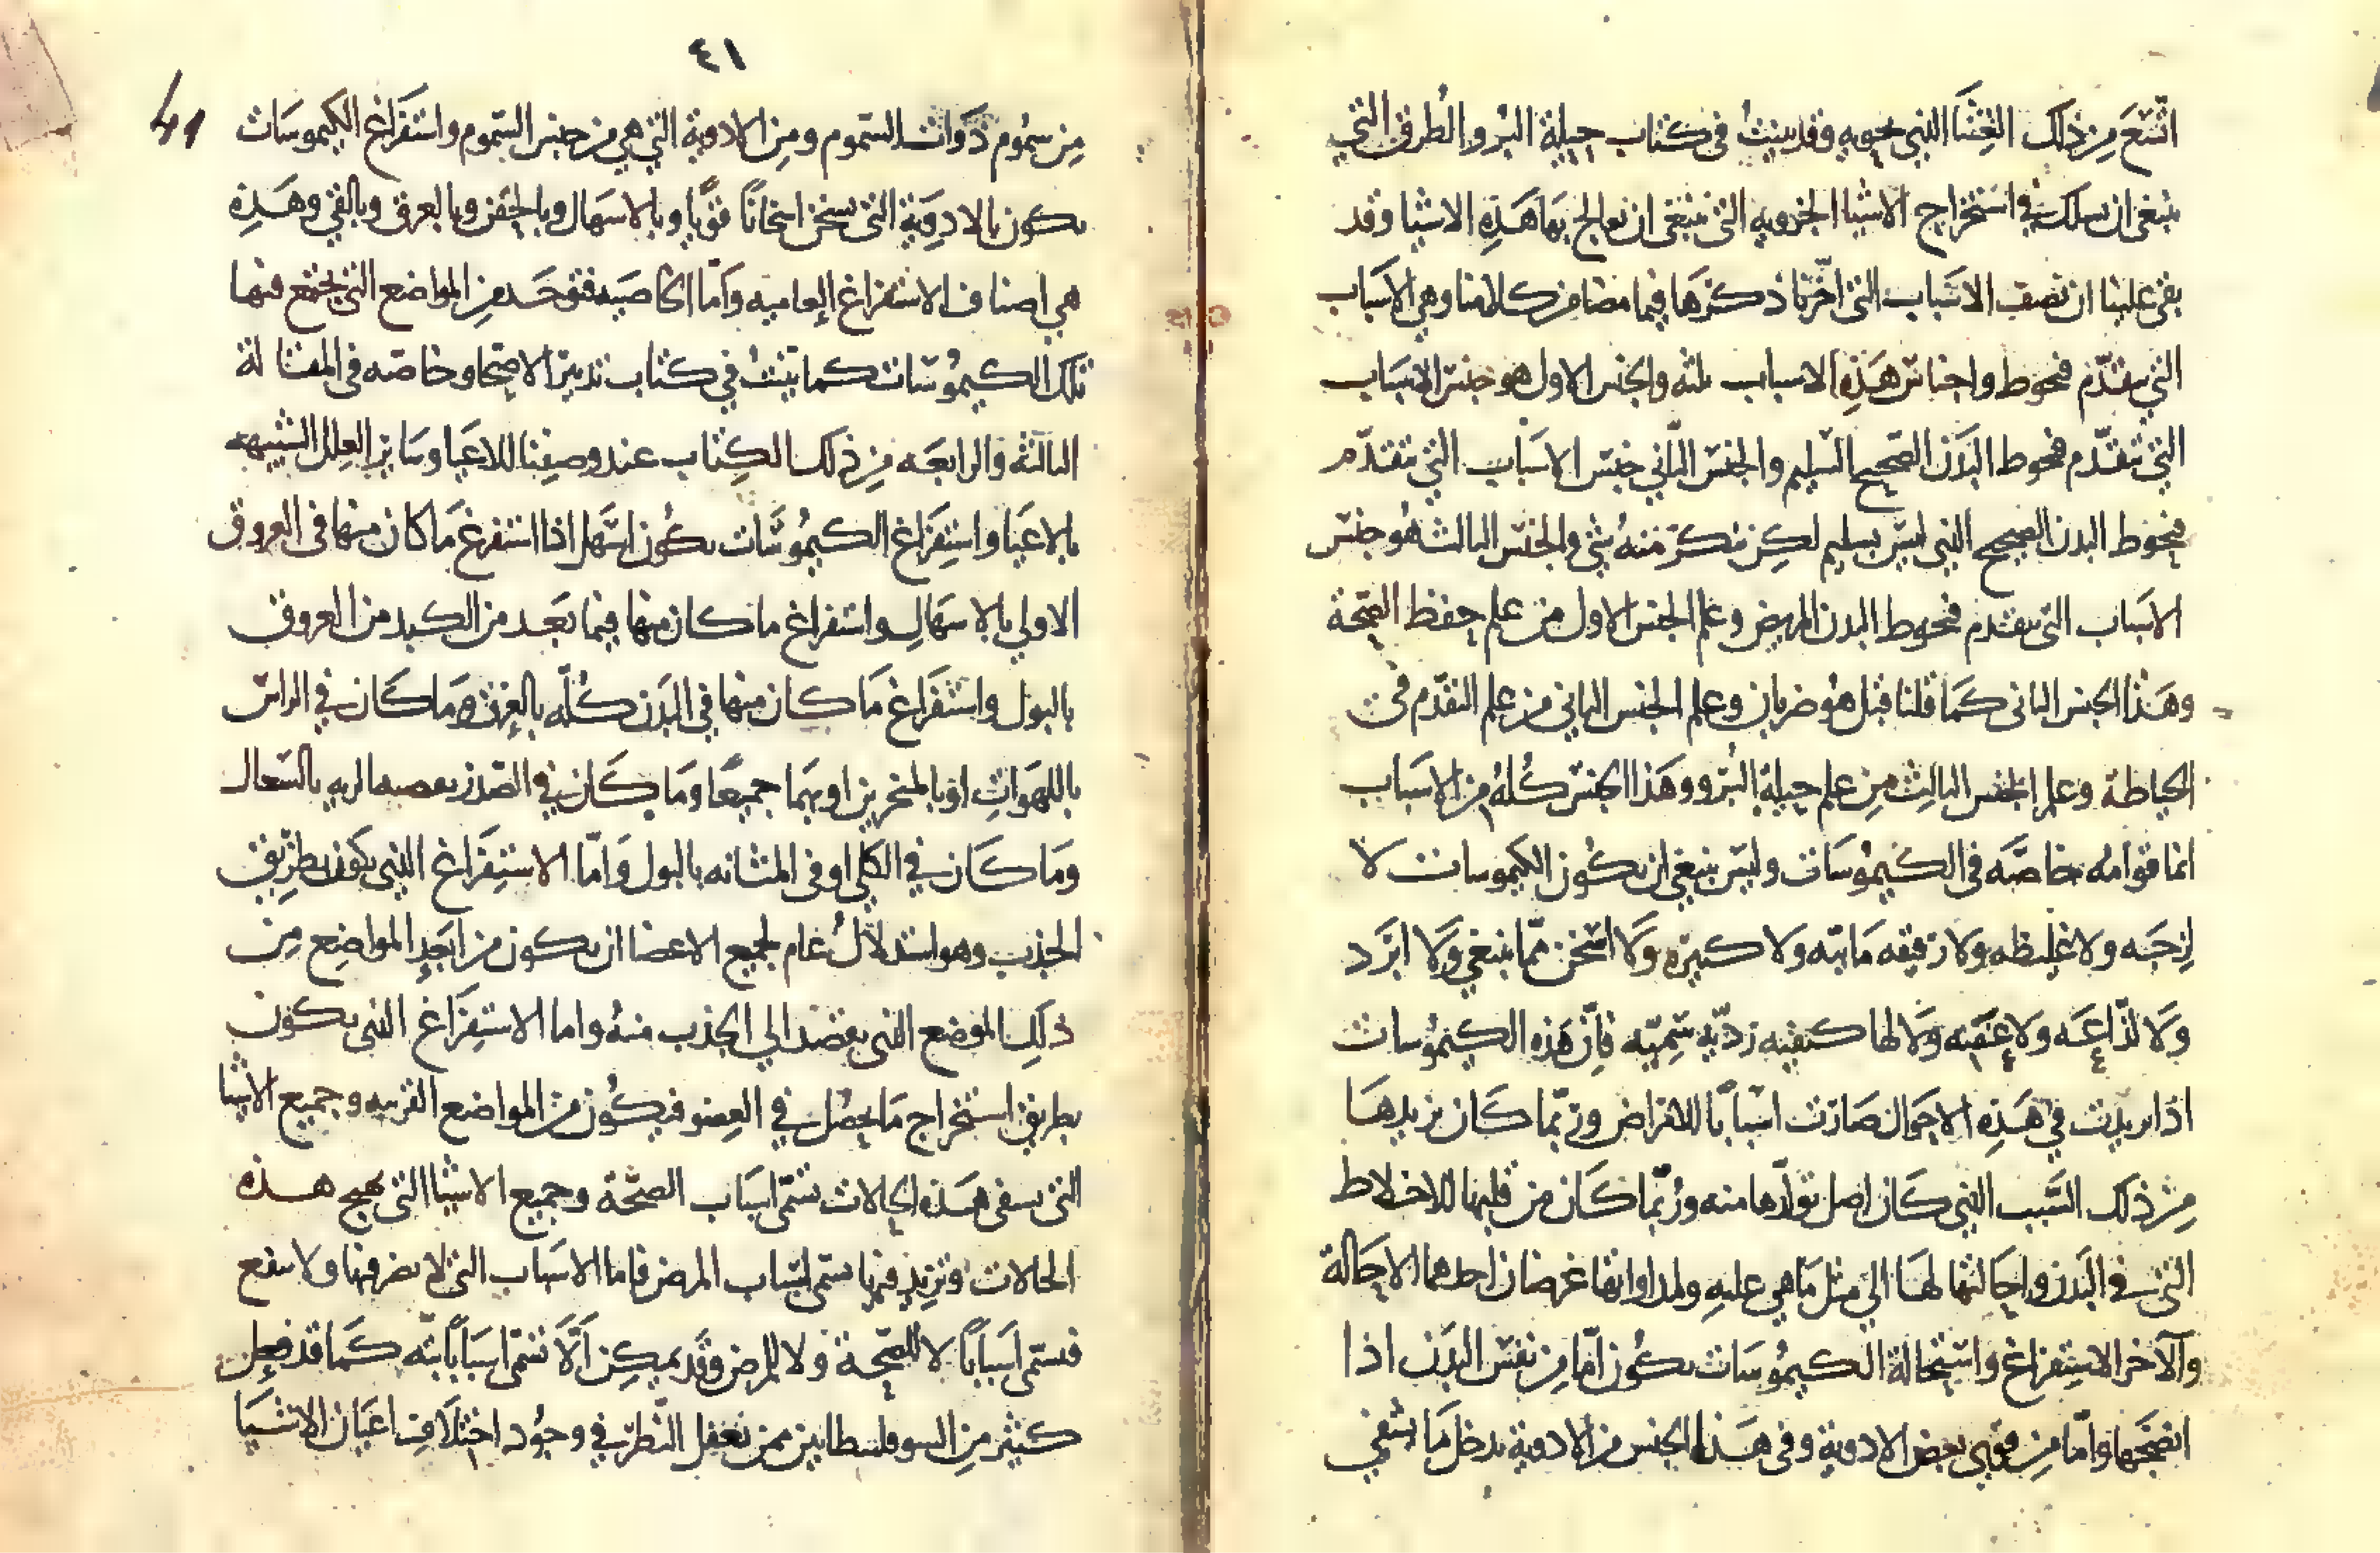 اتسع من ذلك الغشا الذي يحويه وقد بينت في كتاب حيلة البرو الطرق التي
ينبغي ان يسلك في استخراج الاشيا الجزويه التي ينبغي ان يعالج بها هذه الاشيا وقد
بقى علينا ان نصف الاسباب التي اخرنا ذكرها فيما مضا من كلامنا وهي الاسباب
التي يتقدم فيحوط واجناس هذه الاسباب ثلثه والجنس الاول هو جنس الاسباب
التي تتقدم فيحوط البدن الصحيح السليم والجنس الثاني جنس الاسباب التي تتقدم
فيحوط البدن الصحيح الذي ليس بسليم لكن ينكر منه شي والجنس الثالث هو جنس
الاسباب التي يتقدم فيحوط البدن المريض وعلم الجنس الاول من علم حفظ الصحة
وهذا الجنس الثاني كما قلنا قبل هو ضربان وعلم الجنس الثاني من علم التقدم في
الحياطة وعلم الجنس الثالث من علم حيلة البرو وهذا الجنس كله من الاسباب
انما قوامه بخاصه في الكيموسات وليس ينبغي ان يكون الكيموسات لا
لزجه ولا غليظه ولا رقيقه مائيه ولا كثيره ولا اسخن مما ينبغي ولا ابرد
ولا لذاعه ولا عفنه ولا لها كيفيه رديه سميه فان هذه الكيموسات
اذا تزيدت في هذه الاحوال صارت اسبابا للامراض وربما كان تزيدها
من ذلك السبب الذي كان اصل تولدها منه وربما كان من قلبها للاخلاط
التي في البدن واحالتها لها الى مثل ما هي عليه ولمداواتها غرضان احدهما الاحالة
والاخر الاستفراغ واستحالة الكيموسات يكون اما من نفس البدن اذا
انضجها واما من قوى بعض الادوية وفي هذا الجنس من الادوية يدخل ما يشفي
٤١
41
من سموم ذوات السموم ومن الادوية التي هي من جنس السموم واستفراغ الكيموسات
يكون بالادوية التي تسخن اسخانا قويا وبالاسهال وبالحقن وبالعرق وبالقي وهذه
هي اصناف الاستفراغ العاميه واما الخاصيه فتوخد من المواضع التي يجتمع فيها
تلك الكيموسات كما بينت في كتاب تدبير الاصحا وخاصه في المقالة
الثالثة والرابعه من ذلك الكتاب عند وصفنا للاعيا وساير العلل الشبيهه
بالاعيا واستفراغ الكيموسات يكون اسهل اذا استفرغ ما كان منها في العروق
الاولى بالاسهال واستفراغ ما كان منها فيما بعد من الكبد من العروق
بالبول واستفراغ ما كان منها في البدن كله بالعرق وما كان في الراس
باللهوات او بالمنخرين او بهما جميعا وما كان في الصدر بقصبه الريه بالسعال
وما كان في الكلى او في المثانه بالبول واما الاستفراغ الذي يكون بطريق
الجذب وهو استدلال عام لجميع الاعضا ان يكون من ابعد المواضع من
ذلك الموضع الذي يقصد الى الجذب منه واما الاستفراغ الذي يكون
بطريق استخراج ما يحصل في العضو فيكون من المواضع القريبه وجميع الاشيا
التي يشفى هذه الحالات تسمى اسباب الصحة وجميع الاشيا التي تهيج هذه
الحالات وتزيد فيها تسمى اسباب المرض فاما الاسباب التي لا يضر فيها ولا ينفع
فتسمى اسبابا لا للصحة ولا للمرض وقد يمكن الا تسمى اسبابا بته كما قد فعل
كثير من السوفسطايين ممن يغفل النظر في وجود اختلاف اعيان الاشيا